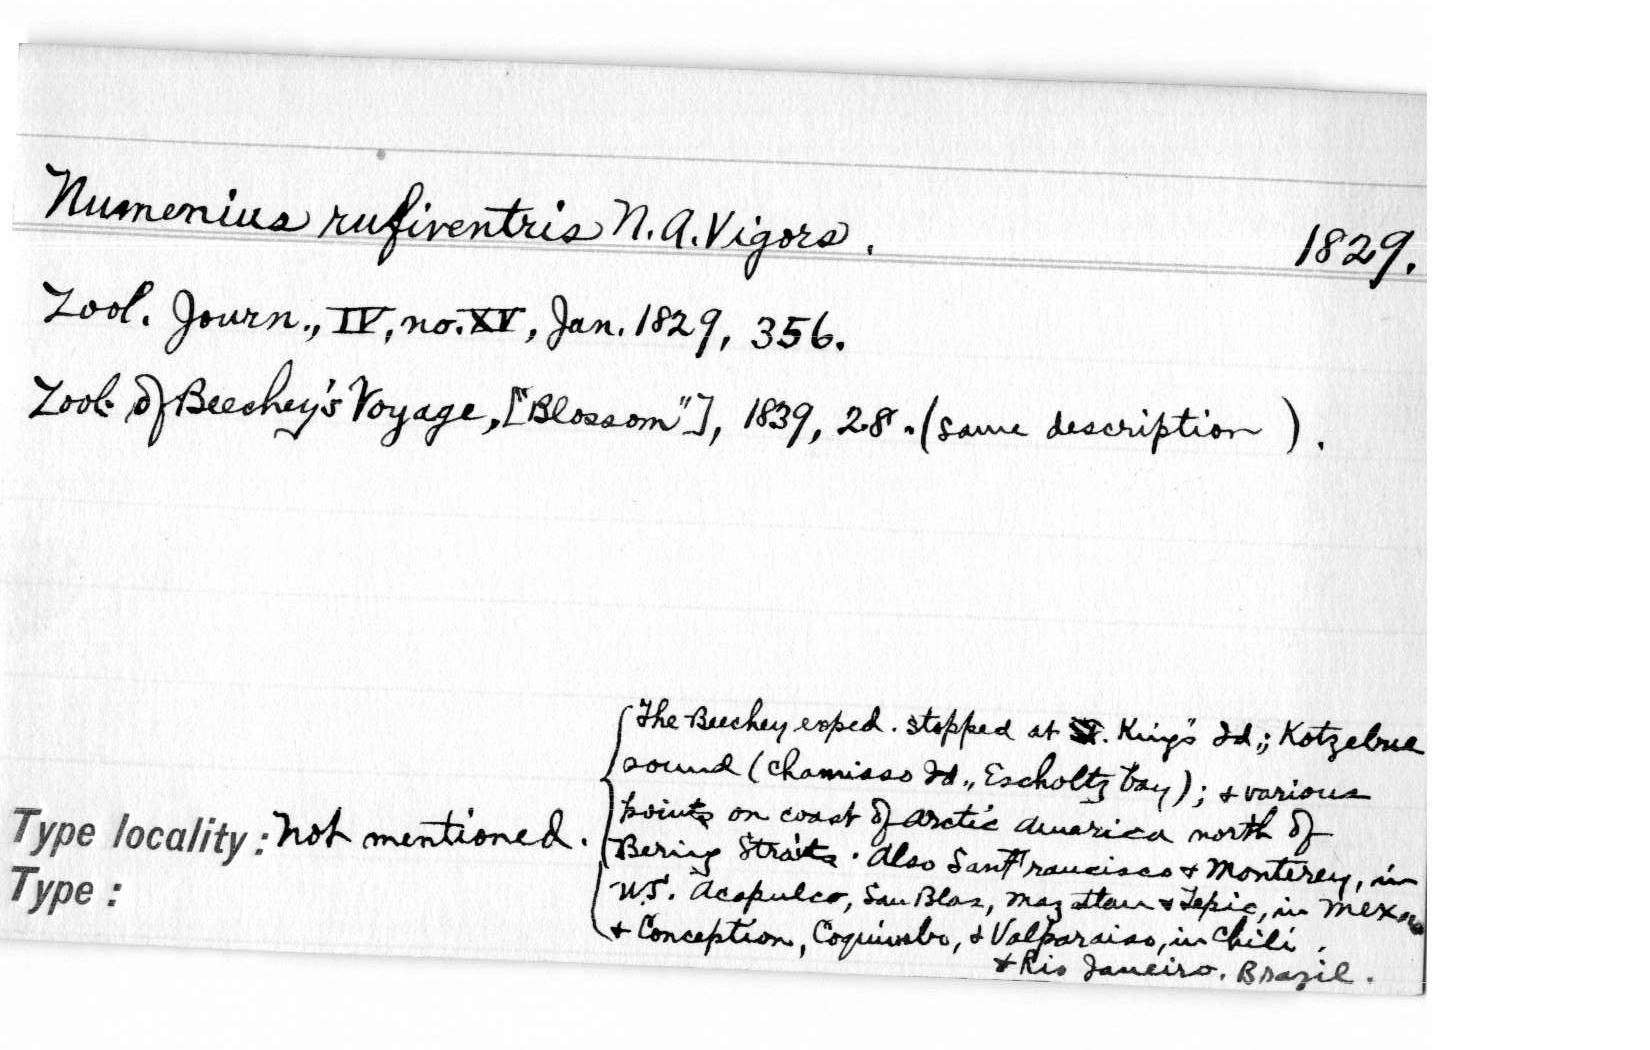 Numenius rufiventris N.A. Vigors. 1829.
Zool. Journ., IV, no. XV, Jan. 1829, 356.
Zool. of Beechey's Voyage, ["Blossom"], 1839, 28. (same description).
The Beechey exped. stopped at King's Id.; Kotzebue
sound (Chamisso Id., Escholtz bay); & various
points on coast of Arctic America north of
Type locality: Not mentioned. Bering Straits. Also San Francisco & Monterey, in
Type: U.S. Acapulco, San Blas, Mazatlan & Tepic, in Mexico
& Conception, Coquimbo, & Valparaiso, in Chili,
& Rio Janeiro. Brazil.